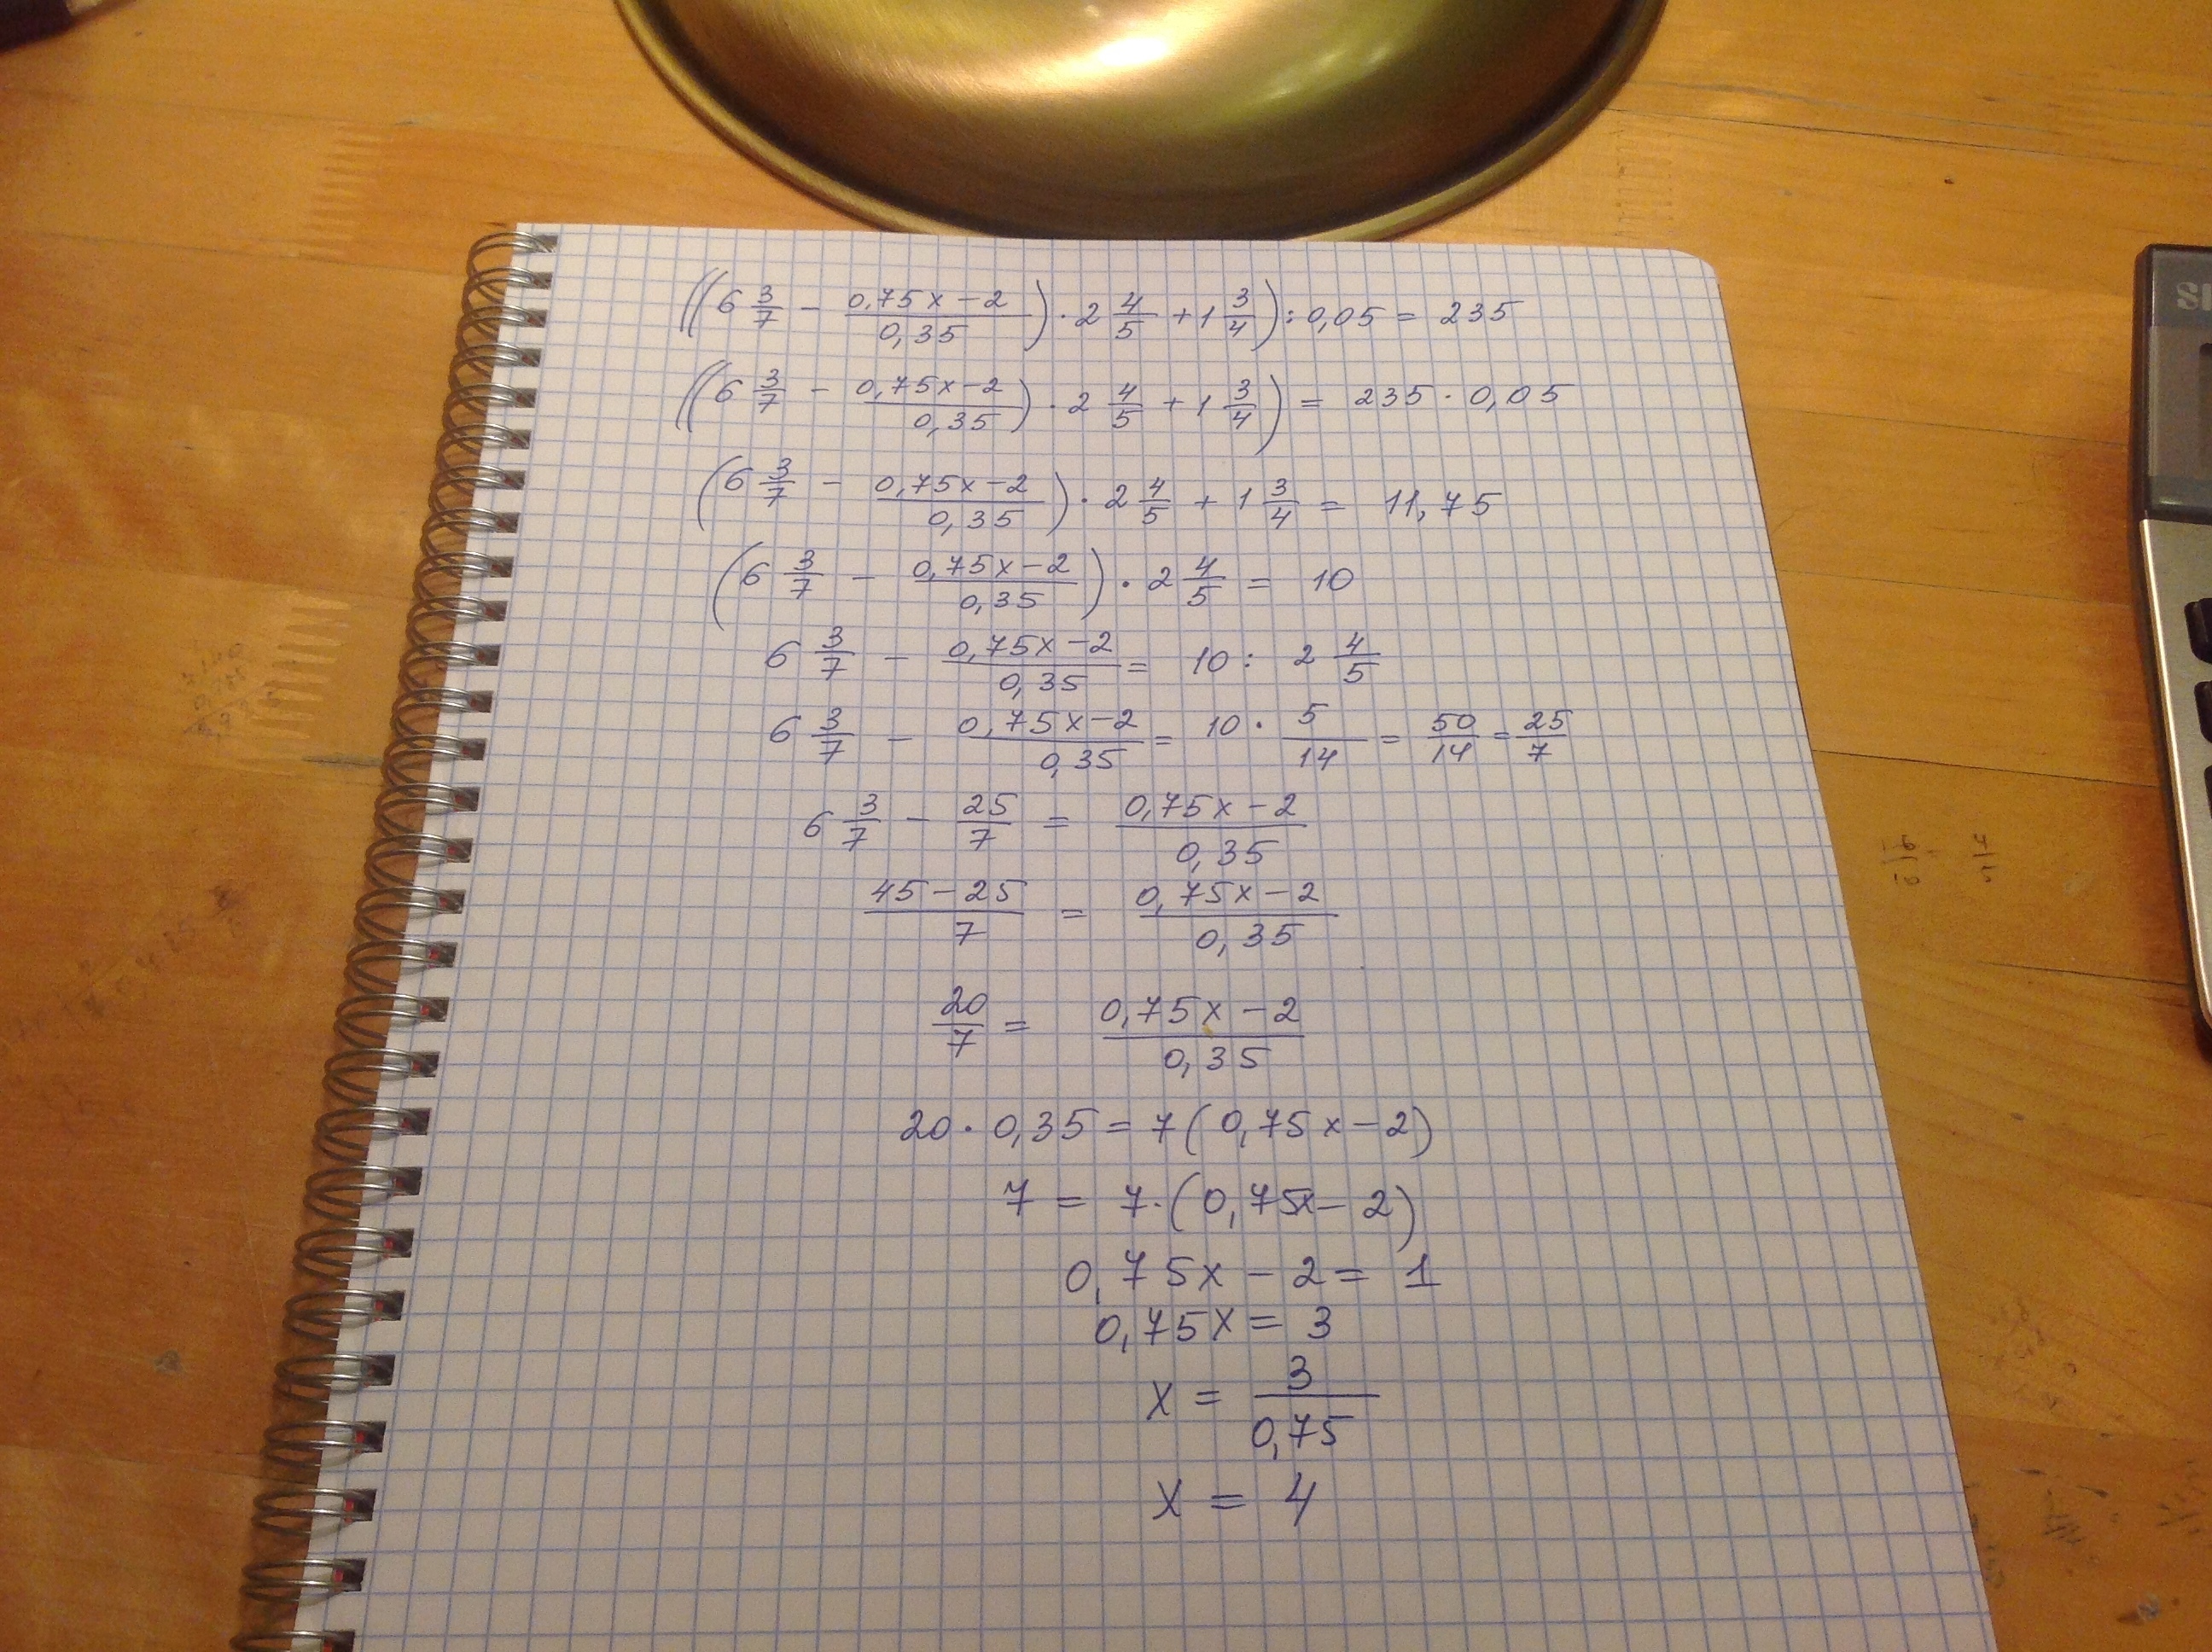 ((6 3/7 - (0,75x-2)/0,35) · 2 4/5 + 1 3/4) : 0,05 = 235
((6 3/7 - (0,75x-2)/0,35) · 2 4/5 + 1 3/4) = 235 · 0,05
(6 3/7 - (0,75x-2)/0,35) · 2 4/5 + 1 3/4 = 11,75
(6 3/7 - (0,75x-2)/0,35) · 2 4/5 = 10
6 3/7 - (0,75x-2)/0,35 = 10 : 2 4/5
6 3/7 - (0,75x-2)/0,35 = 10 · 5/14 = 50/14 = 25/7
6 3/7 - 25/7 = (0,75x-2)/0,35
(45-25)/7 = (0,75x-2)/0,35
20/7 = (0,75x-2)/0,35
20 · 0,35 = 7(0,75x-2)
7 = 7·(0,75x-2)
0,75x-2 = 1
0,75x = 3
x = 3/0,75
x = 4